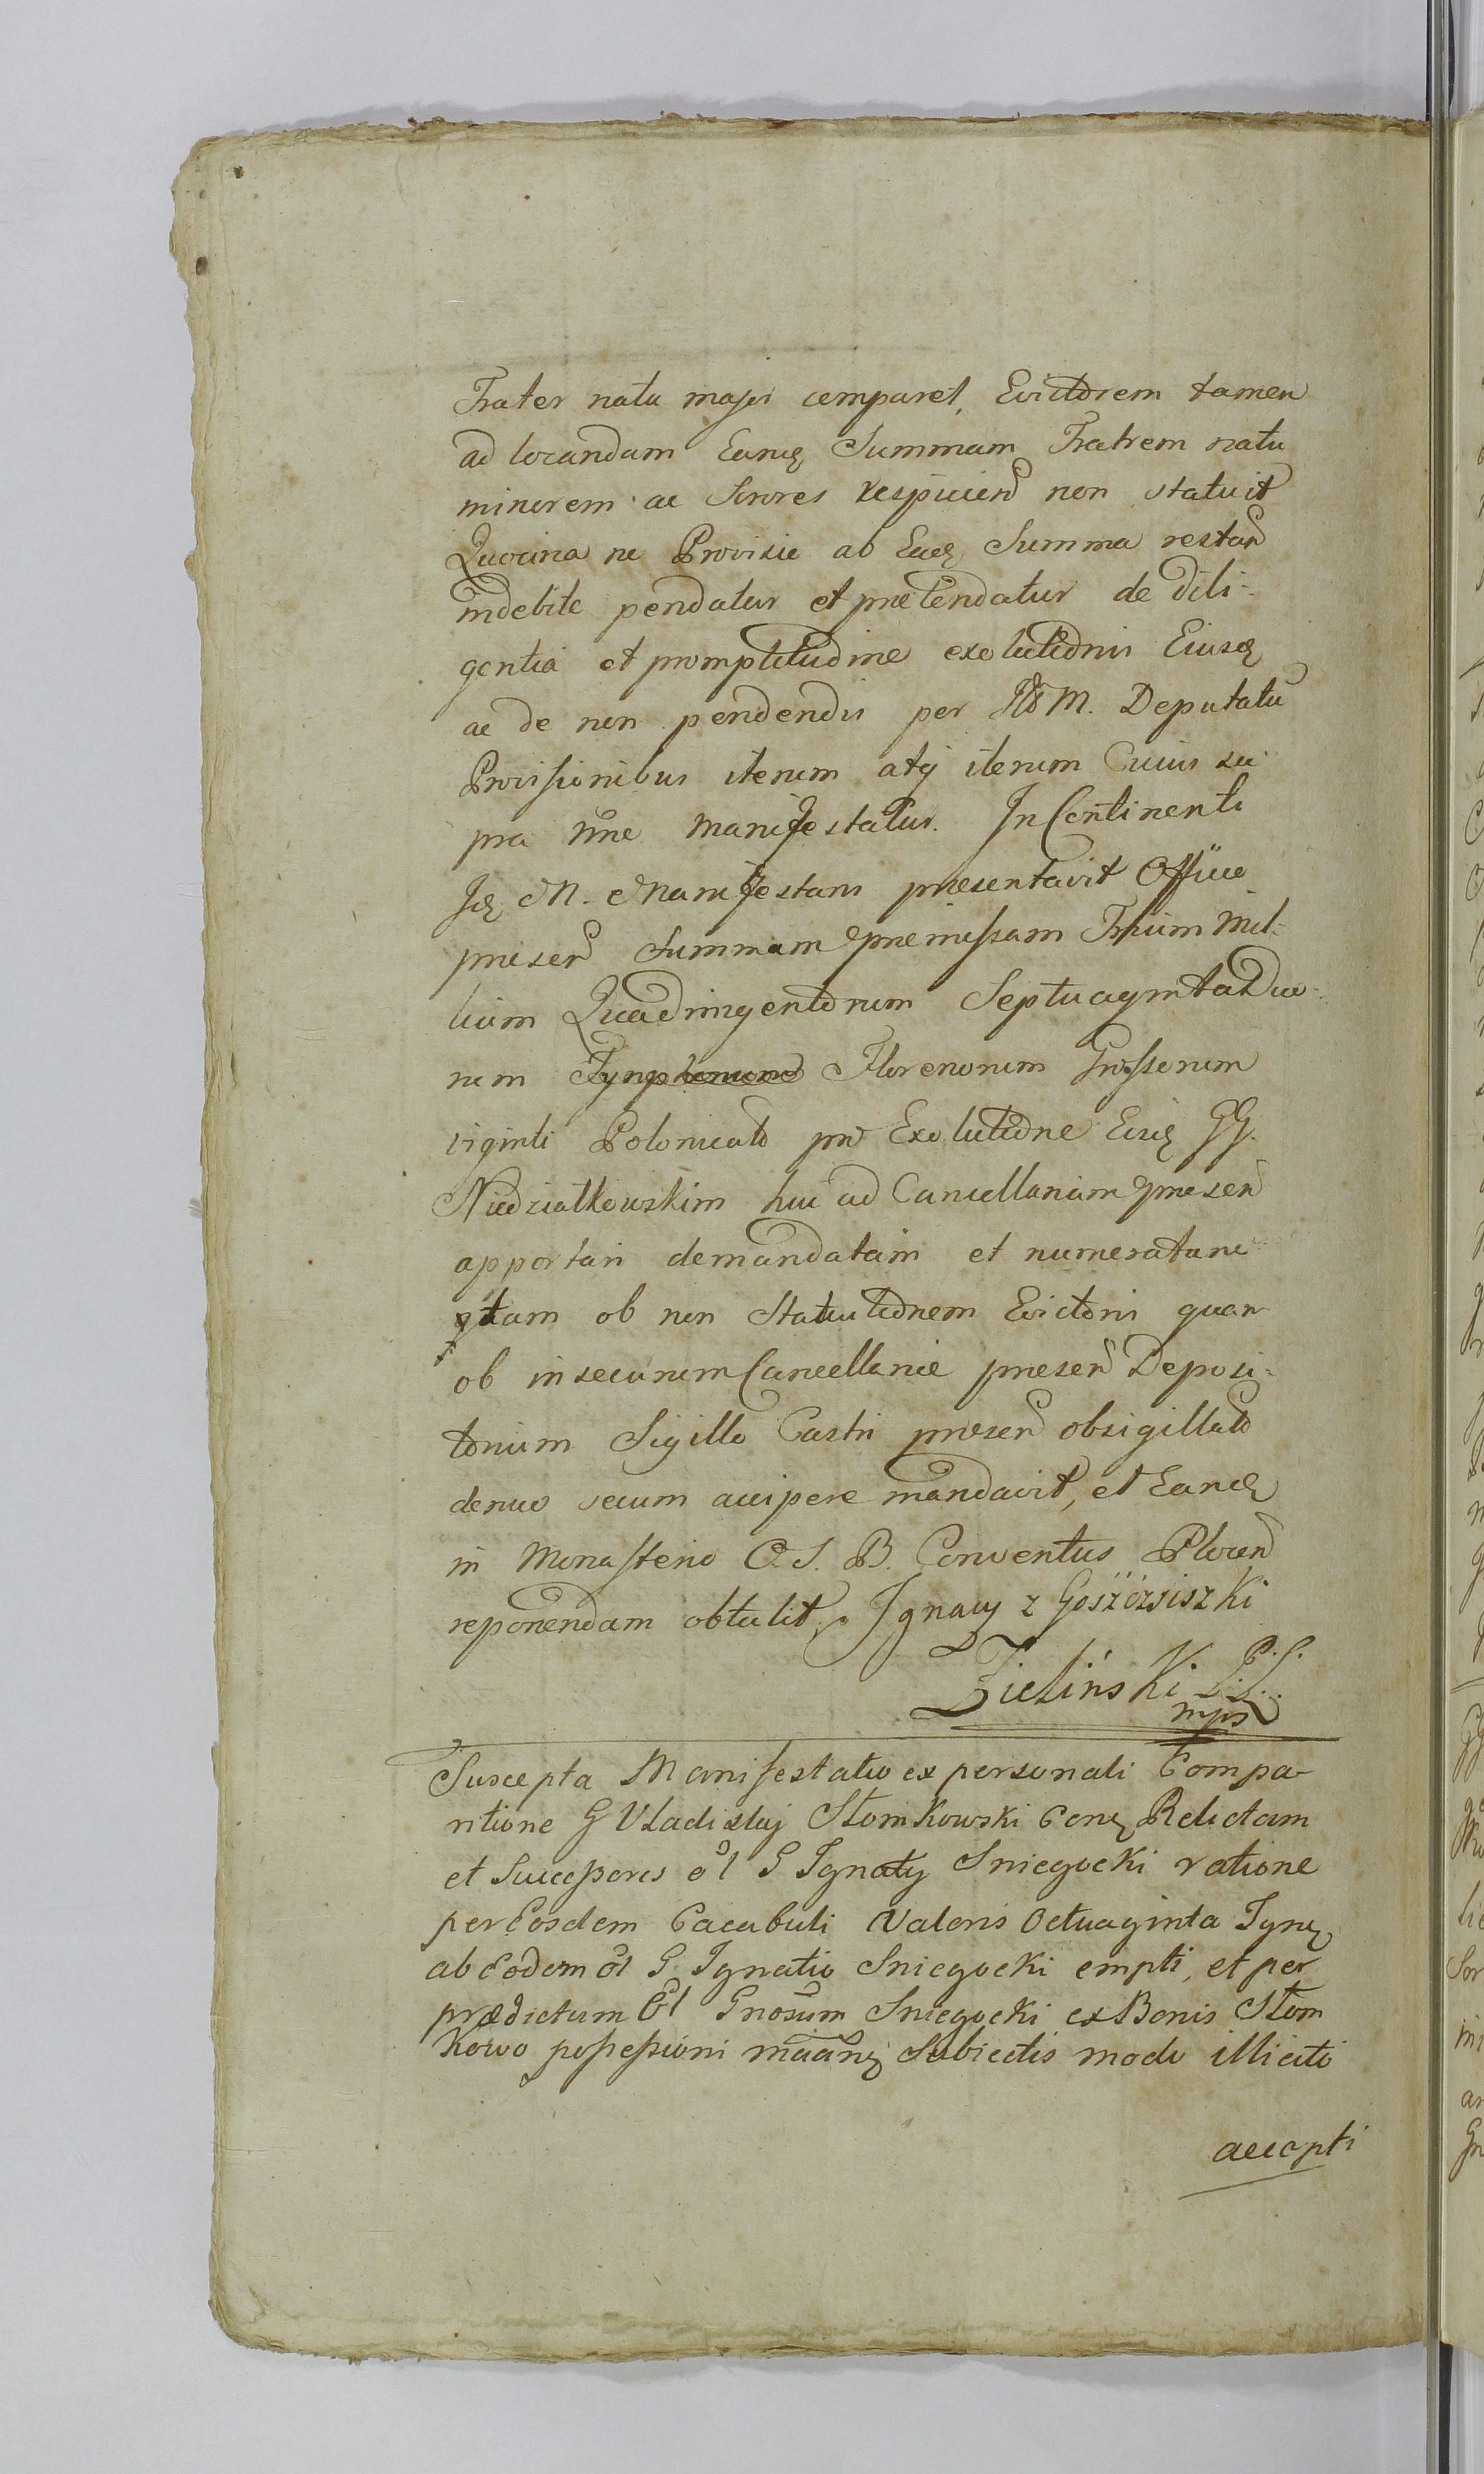 Frater natu major comparet, Evictorem tamen
ad locandam Eandę Summam Fratrem natu
minorem ac Sorores respicien non statuit
Quocirca ne Provisie ab Eadę Summa restan
indebite pendatur et pretendatur de dili-
gentia et promptitudine exolutionis Eiusdę
ac de non pendendis per M. Deputatu
Provisionibus iterum atq iterum Cuius su-
pra nõe manifestatur. In Continenti
Idę M. Manifestans presentavit Officio
presen Summam premissam Trium Mil-
lium Quadringentorum Septuaginta Duo-
rum Tynphonum Florenorum Grossorum
viginti Polonical pro Exolutione Eiusdę GG.
Niedziałkowskim huc ad Cancellariam presen
apportari demandatam et numeratam
qtam ob non Statutionem Evictoris quam
ob insecurum Cancellarie presen Deposi-
torium Sigillo Castri presen obsigillato
denuo secum accipere mandavit, et Eandę
in Monasterio O. S. B. Conventus Plocen
reponendam obtulit. Ignacy z Goszczsiszki
Zieliński P. S.
mps
Suscepta Manifestatio ex personali Compa-
ritione G Vladislaj Słomkowski Conę Relictam
et Successores ol G Ignaty Sniegocki ratione
per Eosdem Cacabuli Valoris Octuaginta Tynę
ab Eodem ol G Ignatio Sniegocki empti, et per
prædictum Ol Gnosum Sniegocki ex Bonis Słom
Kowo possessioni Subiectis modo illicito
accepti